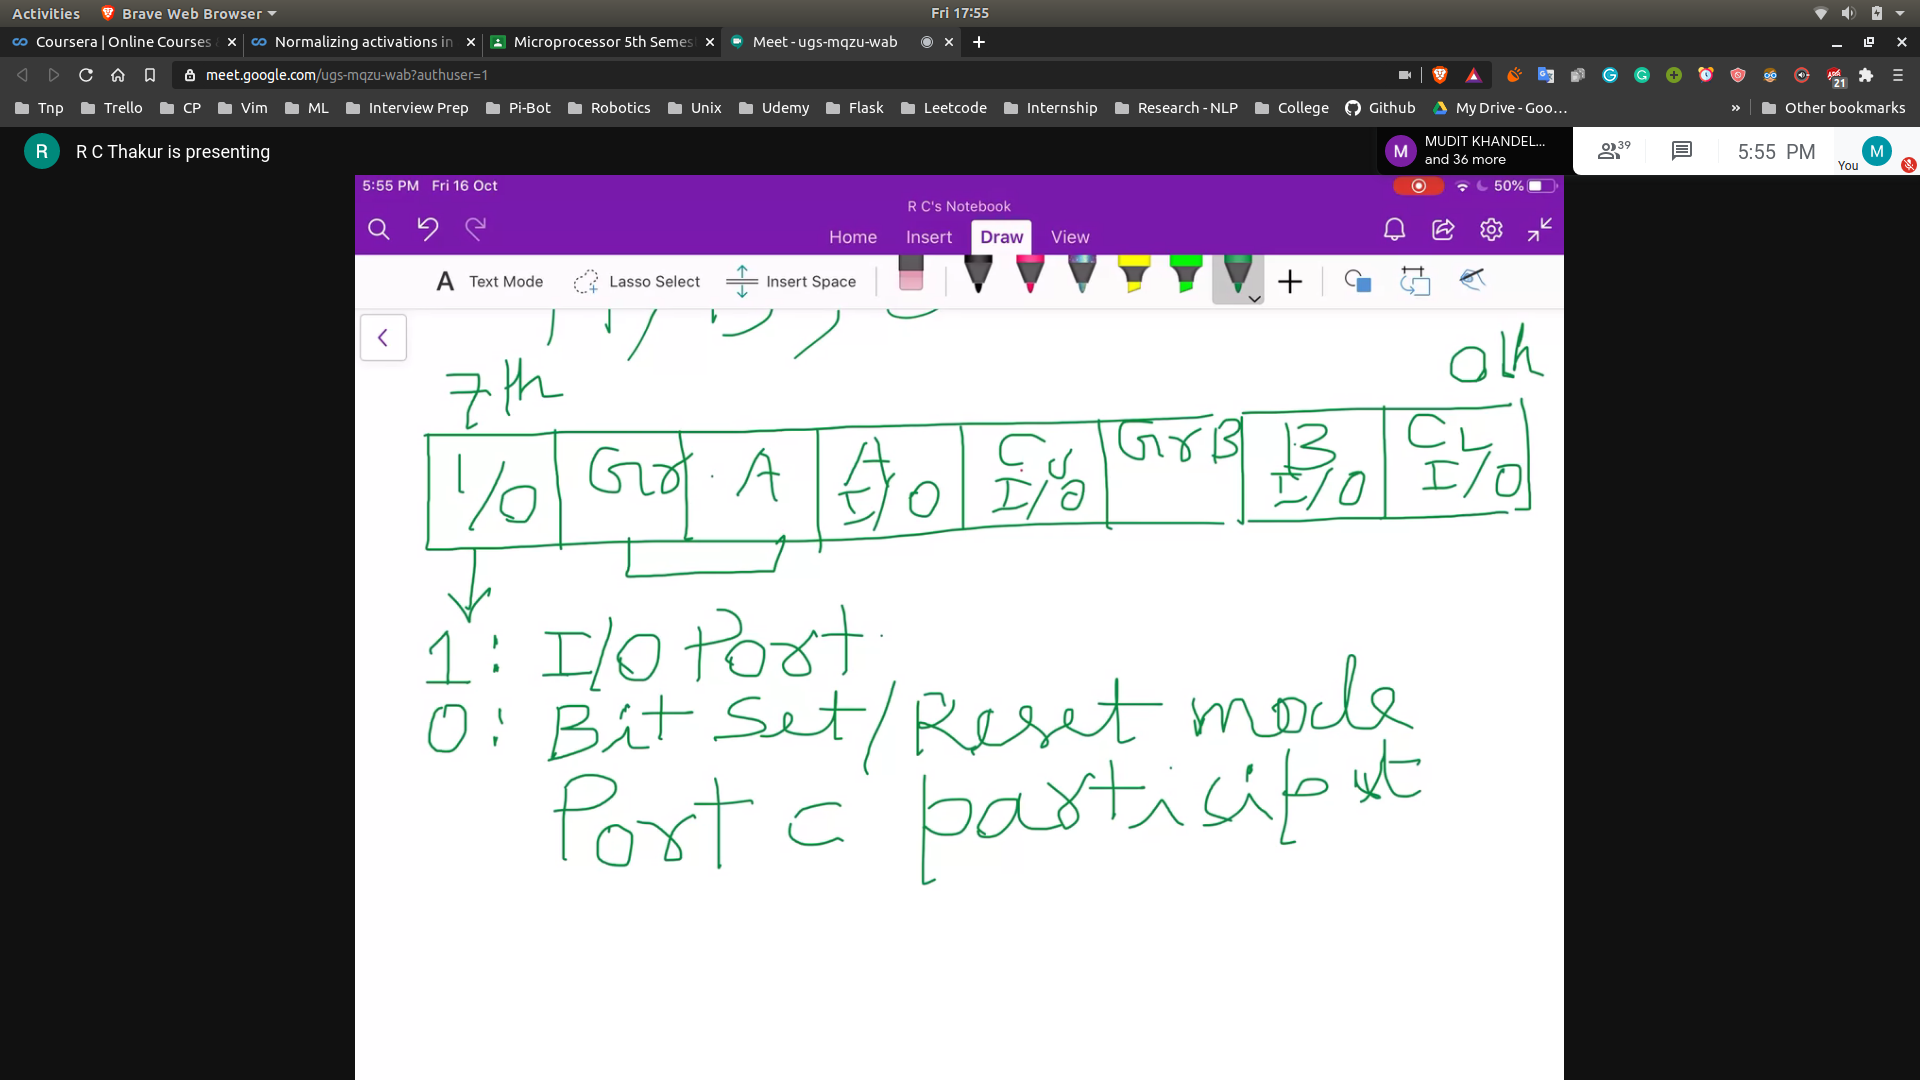 Activities Brave Web Browser Fri 17:55
Coursera | Online Courses Normalizing activations in Microprocessor 5th Semes Meet - ugs-mqzu-wab
meet.google.com/ugs-mqzu-wab?authuser=1 21
Tnp Trello CP Vim ML Interview Prep Pi-Bot Robotics Unix Udemy Flask Leetcode Internship Research - NLP College Github My Drive - Goo... » Other bookmarks
R R C Thakur is presenting M MUDIT KHANDEL... and 36 more 39 5:55 PM You M
5:55 PM Fri 16 Oct 50%
R C's Notebook
Home Insert Draw View
A Text Mode Lasso Select Insert Space
7th 0th
1/0 Gr A A I/O CU I/O Gr B B I/O CL I/O
1: I/O Port
0: Bit Set/Reset mode
Port C